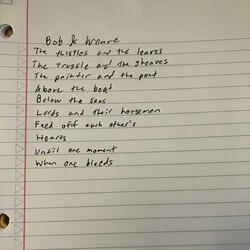 Bob &
The thistles and the leaves
The Trussle and the sheaves
The painter and the poet
Above the boat
Below the seas
Lords and their horsemen
Feed off each other's
Hearts
Until one moment
When one bleeds